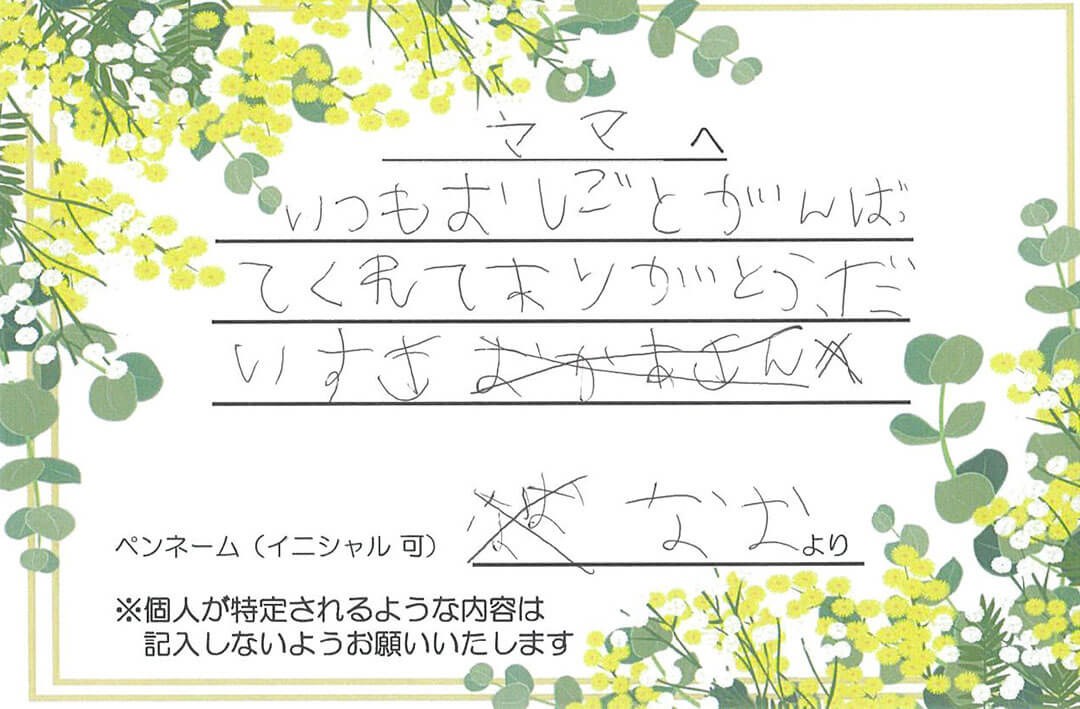 ママ へ
いつもおしごとがんばっ
てくれてありがとう、だ
いすき
ペンネーム（イニシャル 可） なお より
※個人が特定されるような内容は
記入しないようお願いいたします